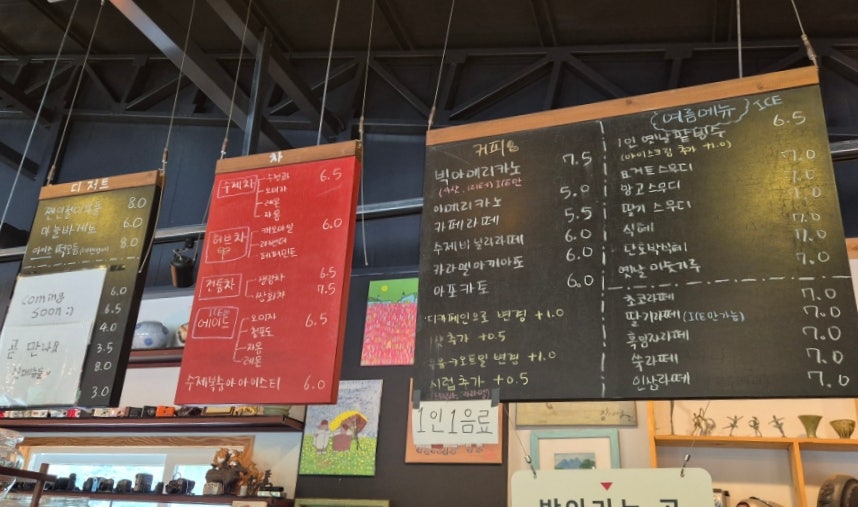 디저트
8.0
마늘바게트 6.0
8.0
coming
soon :)
곧 만나요
6.0
6.5
4.0
3.5
8.0
3.0
차
수제차
수정과 6.5
오미자
레몬
자몽
허브차
캐모마일 6.0
라벤더
페퍼민트
전통차
생강차 6.5
쌍화차 7.5
ICE만
에이드
오미자 6.5
청포도
자몽
레몬
수제복숭아 아이스티 6.0
커피
빅아메리카노 7.5
아메리카노 5.0
카페라떼 5.5
수제바닐라라떼 6.0
카라멜마끼아또 6.0
아포카토 6.0
디카페인으로 변경 +1.0
샷 추가 +0.5
오트밀 변경 +1.0
시럽 추가 +0.5
여름메뉴 ICE
1인 옛날 팥빙수 6.5
(아이스크림 추가 +1.0)
요거트 스무디 7.0
망고 스무디 7.0
딸기 스무디 7.0
식혜 7.0
단호박식혜 7.0
옛날 미숫가루 7.0
초코라떼 7.0
딸기라떼 (ICE만 가능) 7.0
흑임자라떼 7.0
쑥라떼 7.0
인삼라떼 7.0
1인 1음료